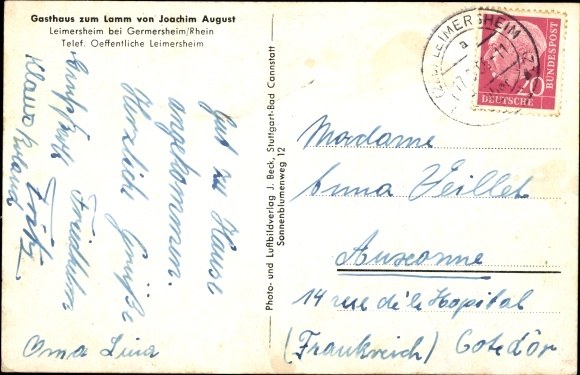 Gasthaus zum Lamm von Joachim August
Leimersheim bei Germersheim/Rhein
Telef. Oeffentliche Leimersheim
Gut zu Hause
angekommen.
Herzliche Grüße
Friedhelm
Fritz
Klaus Roland
Oma Lina
Photo- und Luftbildverlag J. Beck, Stuttgart-Bad Cannstatt
Sonnenblumenweg 12
LEIMERSHEIM
a
20
DEUTSCHE
BUNDESPOST
Madame
Anna Veillet
Auxonne
14 rue de le Hopital
(Frankreich) Cote d'or